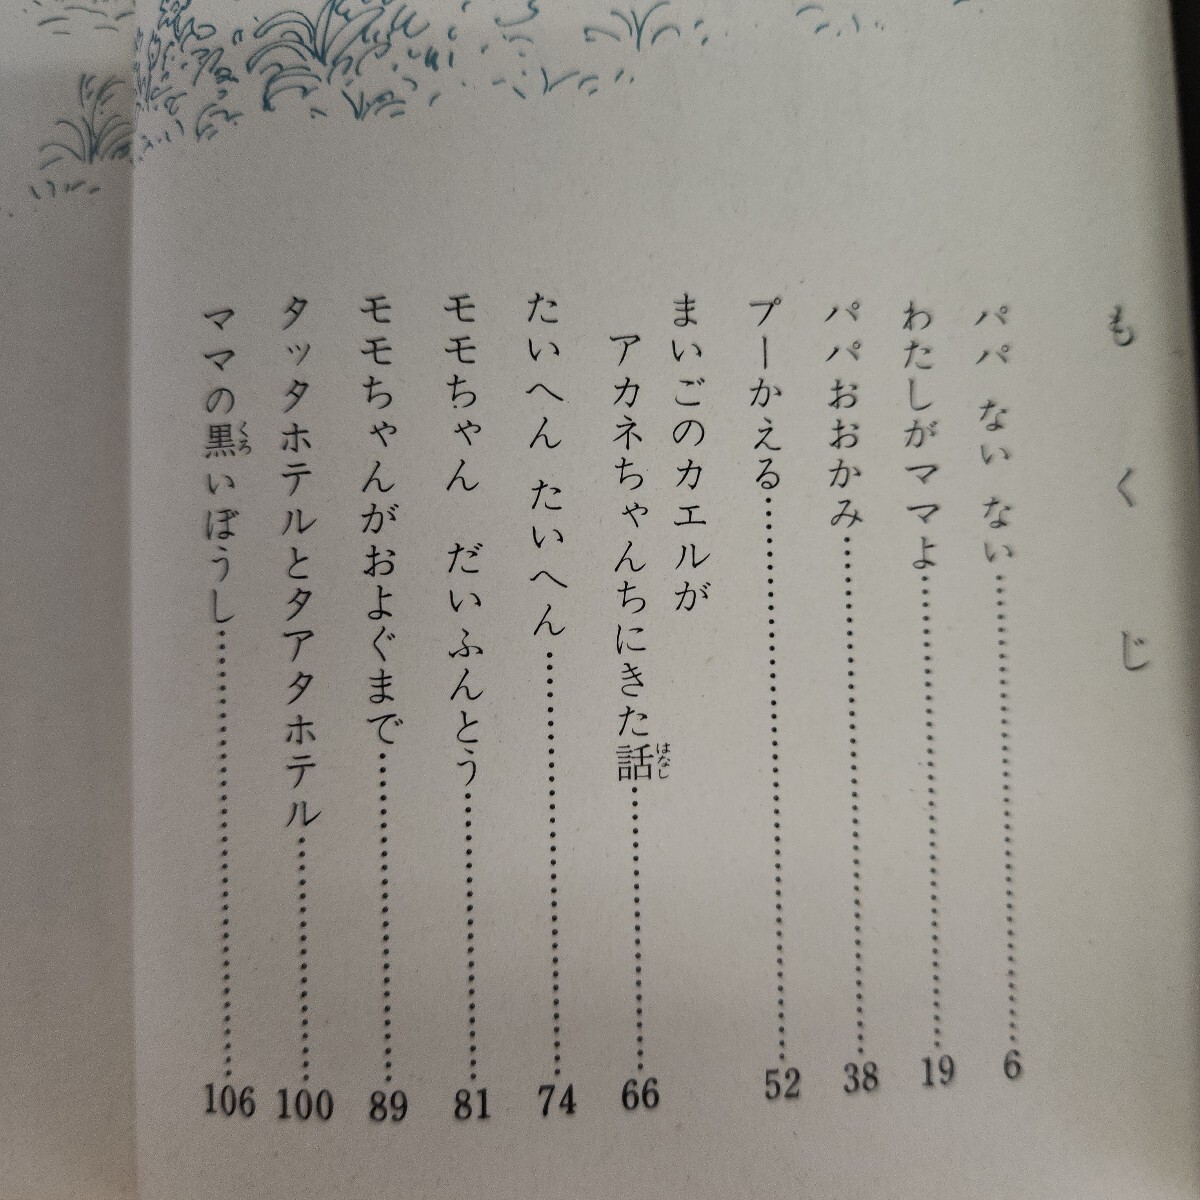 もくじ
パパ ない ない……6
わたしがママよ……19
パパおおかみ……38
プーかえる……52
まいごのカエルが
アカネちゃんちにきた話はなし……66
たいへん たいへん……74
モモちゃん だいふんとう……81
モモちゃんがおよぐまで……89
タッタホテルとタアタホテル……100
ママの黒くろいぼうし……106